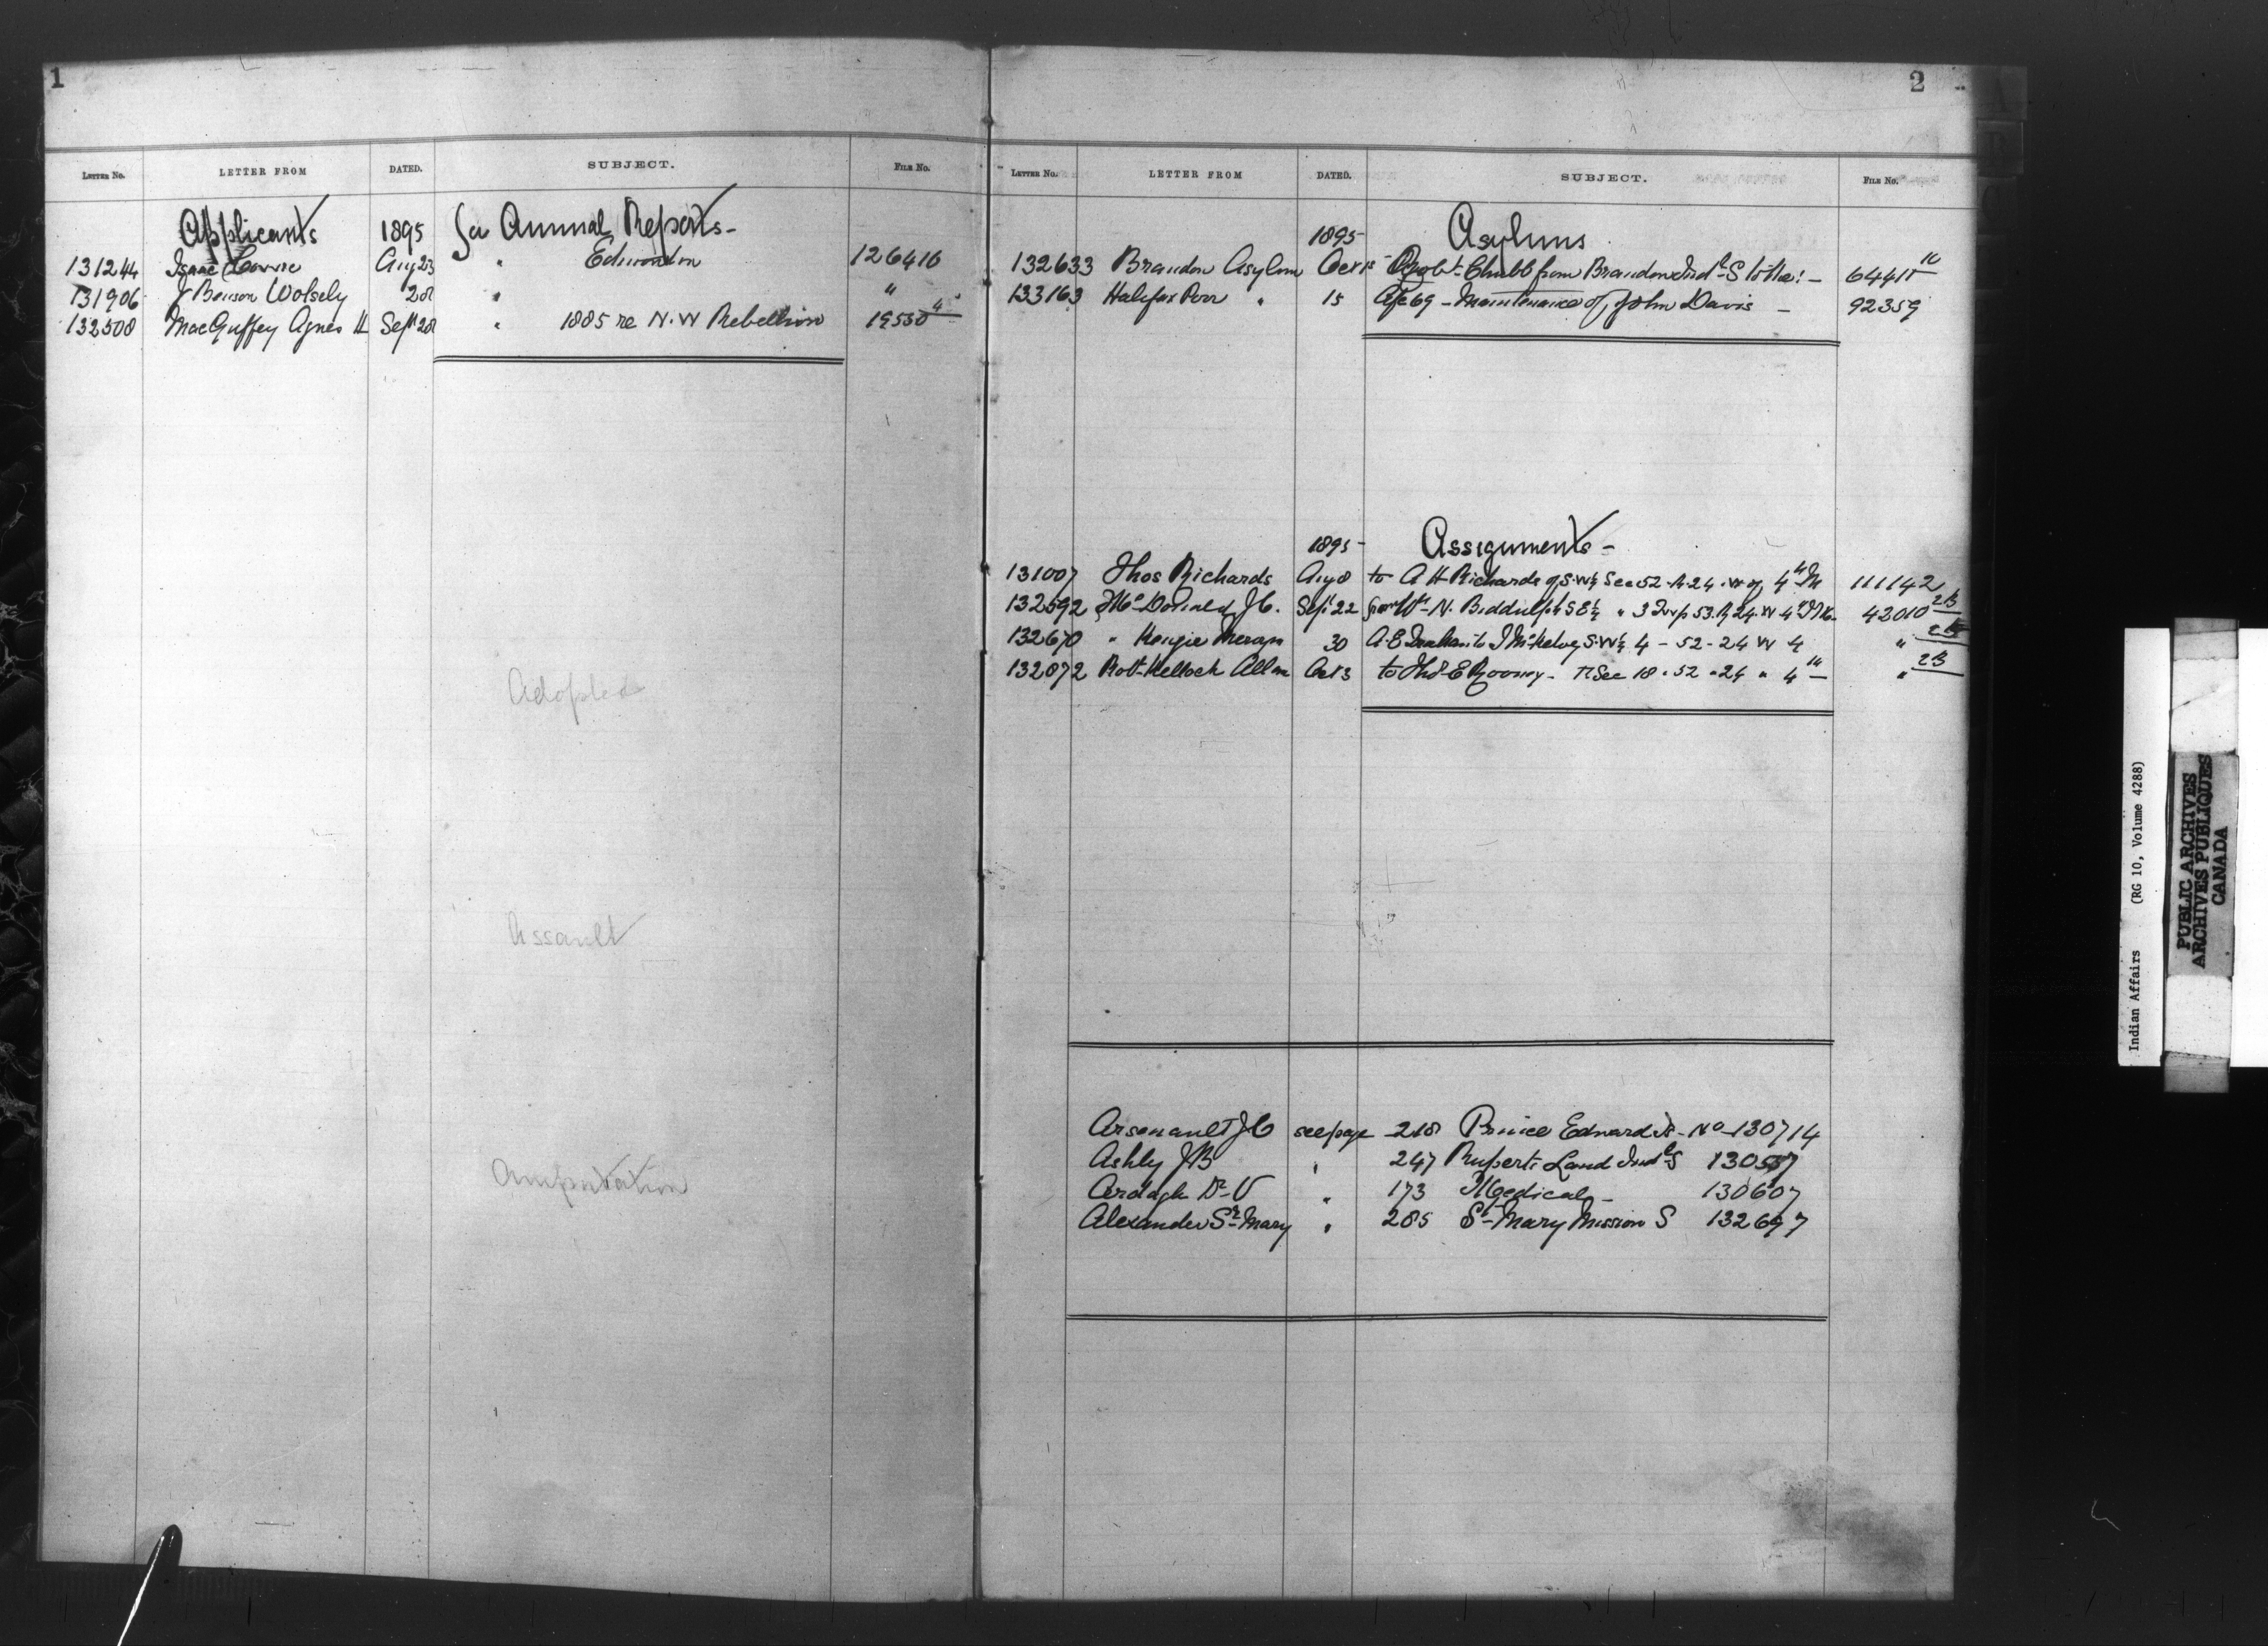 1
LETTER NO. LETTER FROM DATED. SUBJECT. FILE NO.
Applicants 1895 for Annual Reports -
131244 Isaac Cowie Aug 23 " Edmonton 126416
131906 J Benson Wolsely 28 " "
132508 MacGuffey Agnes H Sept 28 " 1885 re N.W Rebellion 19550 4
Adopted
Assault
Amputation
2
LETTER NO. LETTER FROM DATED. SUBJECT. FILE NO.
1895 Asylums
132633 Brandon Asylum Oct 1st Robt Chubb from Brandon Indl S to the: -
133163 Halifax Poor " 15 Age 69 - Maintenance of John Davis - 92359
1895 - Assignments -
131007 Thos Richards Aug 8 to A H Richards of S.W¼ Sec 52. R. 24. W of 4th M 111142
132592 McDonald J C. Sept 22 from Wm N. Biddulph S E¼ " 3 Twp 53. R 24. W 4th M. 42010 2B
132670 " Kenzie 30 A. E to J McKelvey S.W¼ 4 - 52 - 24 W 4 " 2B
132872 Robt Kellock Allan Oct 3 to Thos E Rooney - Sec 18 " 52 " 24 " 4th " 2B
Arsenault J C see page 218 Prince Edward Is - No 130714
Ashly J B " 247 Ruperts Land Indl S 130557
Ardagh Dr V " 173 Medical - 130607
Alexander Sr Mary " 285 St Mary Mission S 132697
Indian Affairs (RG 10, Volume 4288)
PUBLIC ARCHIVES
ARCHIVES PUBLIQUES
CANADA